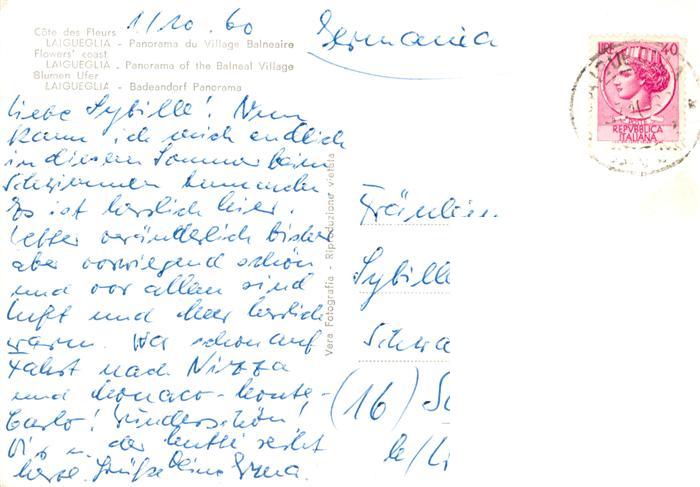 Côte des Fleurs
LAIGUEGLIA - Panorama du Village Balneaire
Flowers' coast
LAIGUEGLIA - Panorama of the Balneal Village
Blumen Ufer
LAIGUEGLIA - Badeandorf Panorama
1/10. 60
Germania
LIRE 40
POSTE
REPVBBLICA
ITALIANA
Liebe Sybille! Nun
kann ich mich endlich
in diesem Sommer beim
Schwimmen
Es ist herrlich hier.
Wetter veränderlich bisher
aber vorwiegend schön
und vor allem sind
Luft und Meer herrlich
warm. War schon auf
Fahrt nach Nizza
und Monaco-Monte-
Carlo! Wunderschön!
Dir u. der Mutti recht
herzl. Grüße Deine Erna.
Vera Fotografia - Riproduzione vietata
Fräulein
Sybille
Schwa
(16) Sc